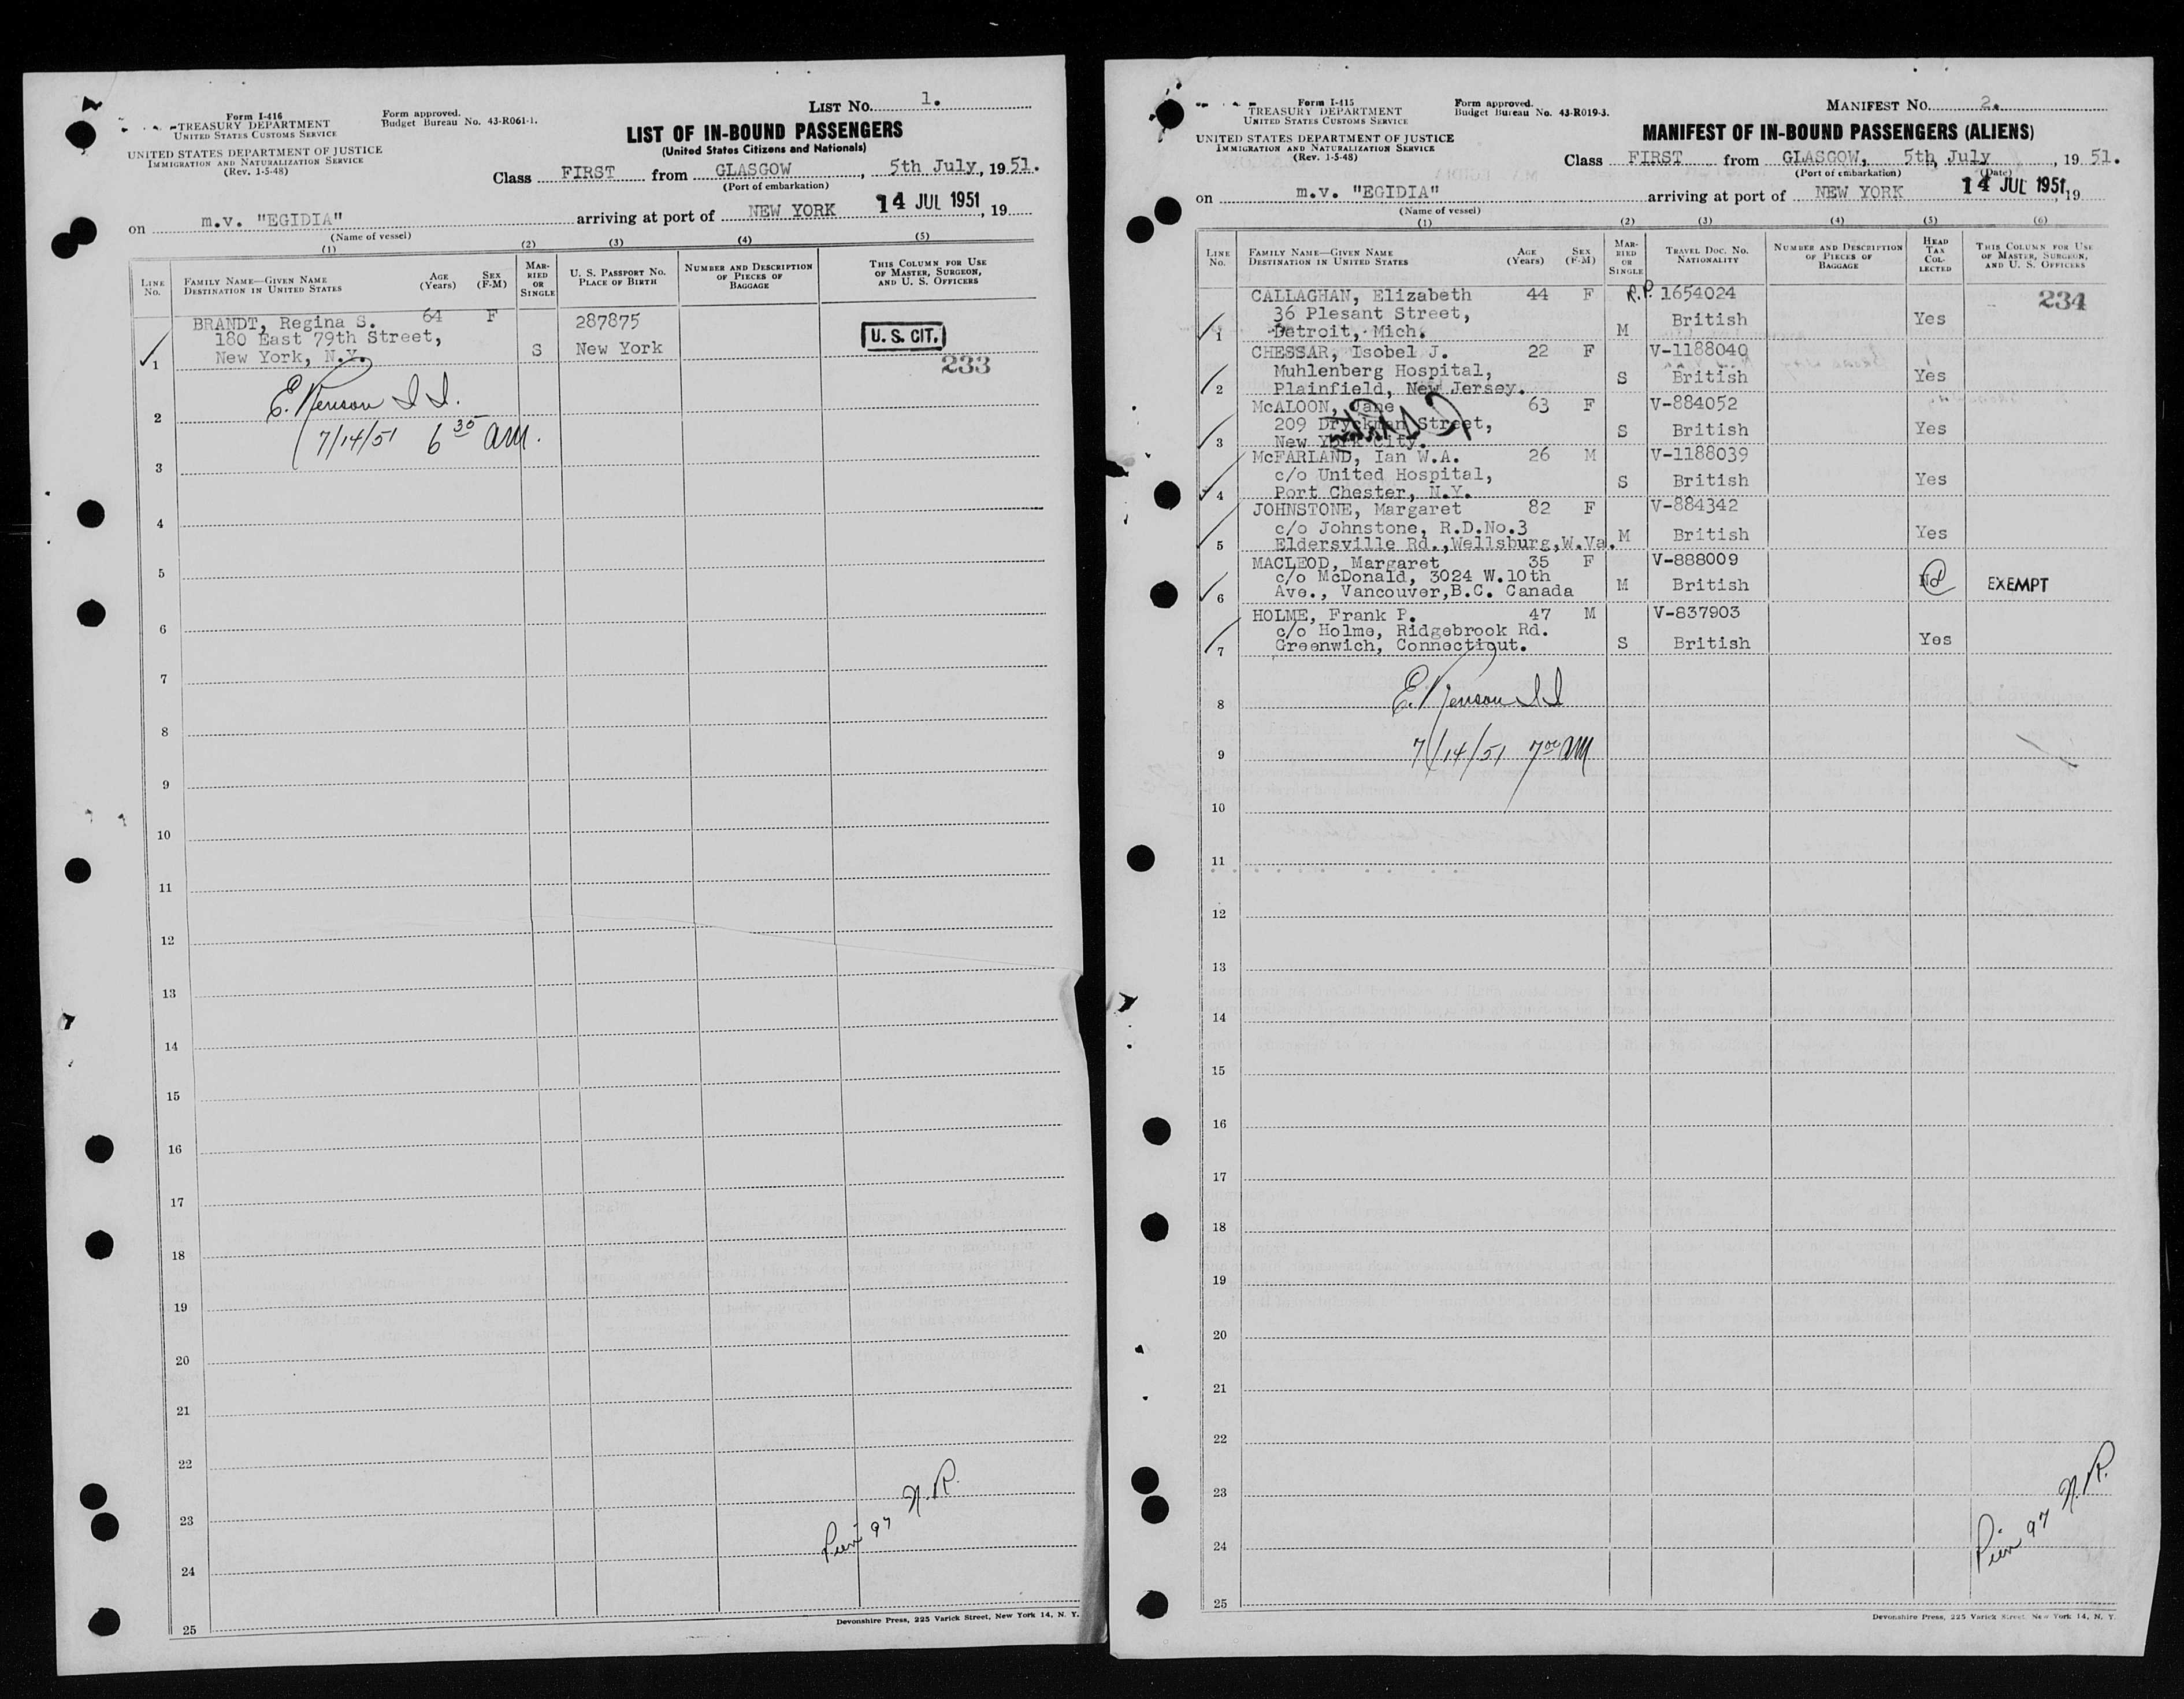 LIST NO. 1.
Form I-416
TREASURY DEPARTMENT
UNITED STATES CUSTOMS SERVICE
UNITED STATES DEPARTMENT OF JUSTICE
IMMIGRATION AND NATURALIZATION SERVICE
(Rev. 1-5-48)
Form approved.
Budget Bureau No. 43-R061-1.
LIST OF IN-BOUND PASSENGERS
(United States Citizens and Nationals)
Class FIRST from GLASGOW, 5th July, 1951.
(Port of embarkation)
on m.v. "EGIDIA" arriving at port of NEW YORK 14 JUL 1951, 19
(Name of vessel)
(1) (2) (3) (4) (5)
LINE NO. FAMILY NAME—GIVEN NAME DESTINATION IN UNITED STATES AGE (Years) SEX (F-M) MARRIED OR SINGLE U. S. PASSPORT NO. PLACE OF BIRTH NUMBER AND DESCRIPTION OF PIECES OF BAGGAGE THIS COLUMN FOR USE OF MASTER, SURGEON, AND U. S. OFFICERS
BRANDT, Regina S. 64 F 287875
180 East 79th Street, U. S. CIT.
1 New York, N.Y. S New York 233
E. Renson I I.
2
7/14/51 6 35 AM.
3
4
5
6
7
8
9
10
11
12
13
14
15
16
17
18
19
20
21
22
23
Pier 97 N.R.
24
25
Devonshire Press, 225 Varick Street, New York 14, N. Y.
MANIFEST NO. 2.
Form I-415
TREASURY DEPARTMENT
UNITED STATES CUSTOMS SERVICE
UNITED STATES DEPARTMENT OF JUSTICE
IMMIGRATION AND NATURALIZATION SERVICE
(Rev. 1-5-48)
Form approved.
Budget Bureau No. 43-R019-3.
MANIFEST OF IN-BOUND PASSENGERS (ALIENS)
Class FIRST from GLASGOW, 5th, July, 19 51.
(Port of embarkation) (Date)
on m.v. "EGIDIA" arriving at port of NEW YORK 14 JUL 1951, 19
(Name of vessel)
(1) (2) (3) (4) (5) (6)
LINE NO. FAMILY NAME—GIVEN NAME DESTINATION IN UNITED STATES AGE (Years) SEX (F-M) MARRIED OR SINGLE TRAVEL DOC. NO. NATIONALITY NUMBER AND DESCRIPTION OF PIECES OF BAGGAGE HEAD TAX COLLECTED THIS COLUMN FOR USE OF MASTER, SURGEON, AND U. S. OFFICERS
CALLAGHAN, Elizabeth 44 F R.P. 1654024 234
36 Plesant Street, British Yes
1 Detroit, Mich. M
CHESSAR, Isobel J. 22 F V-1188040
Muhlenberg Hospital, S British Yes
2 Plainfield, New Jersey.
McALOON, Jane 63 F V-884052
209 Dryckman Street, S British Yes
3 New York City.
McFARLAND, Ian W.A. 26 M V-1188039
c/o United Hospital, S British Yes
4 Port Chester, N.Y.
JOHNSTONE, Margaret 82 F V-884342
c/o Johnstone, R.D.No.3 M British Yes
5 Eldersville Rd.,Wellsburg,W.Va.
MACLEOD, Margaret 35 F V-888009
c/o McDonald, 3024 W.10th M British No EXEMPT
6 Ave., Vancouver,B.C. Canada
HOLME, Frank P. 47 M V-837903
c/o Holme, Ridgebrook Rd. Yes
7 Greenwich, Connecticut. S British
E. Renson I I
8
7/14/51 7 00 AM
9
10
11
12
13
14
15
16
17
18
19
20
21
22
23
Pier 97 N.R.
24
25
Devonshire Press, 225 Varick Street, New York 14, N. Y.